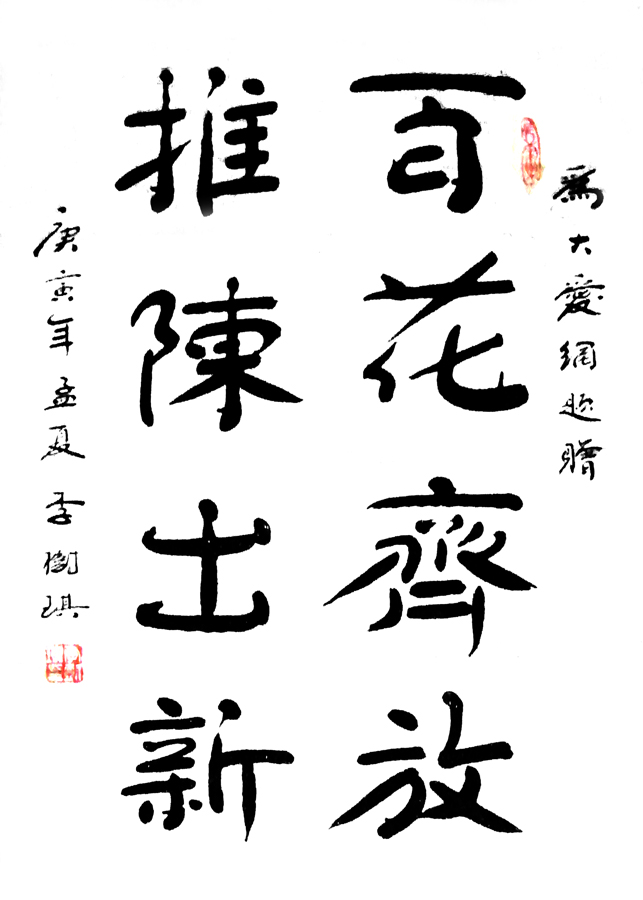 爲大愛網題贈
百花齊放
推陳出新
庚寅年孟夏李樹琪